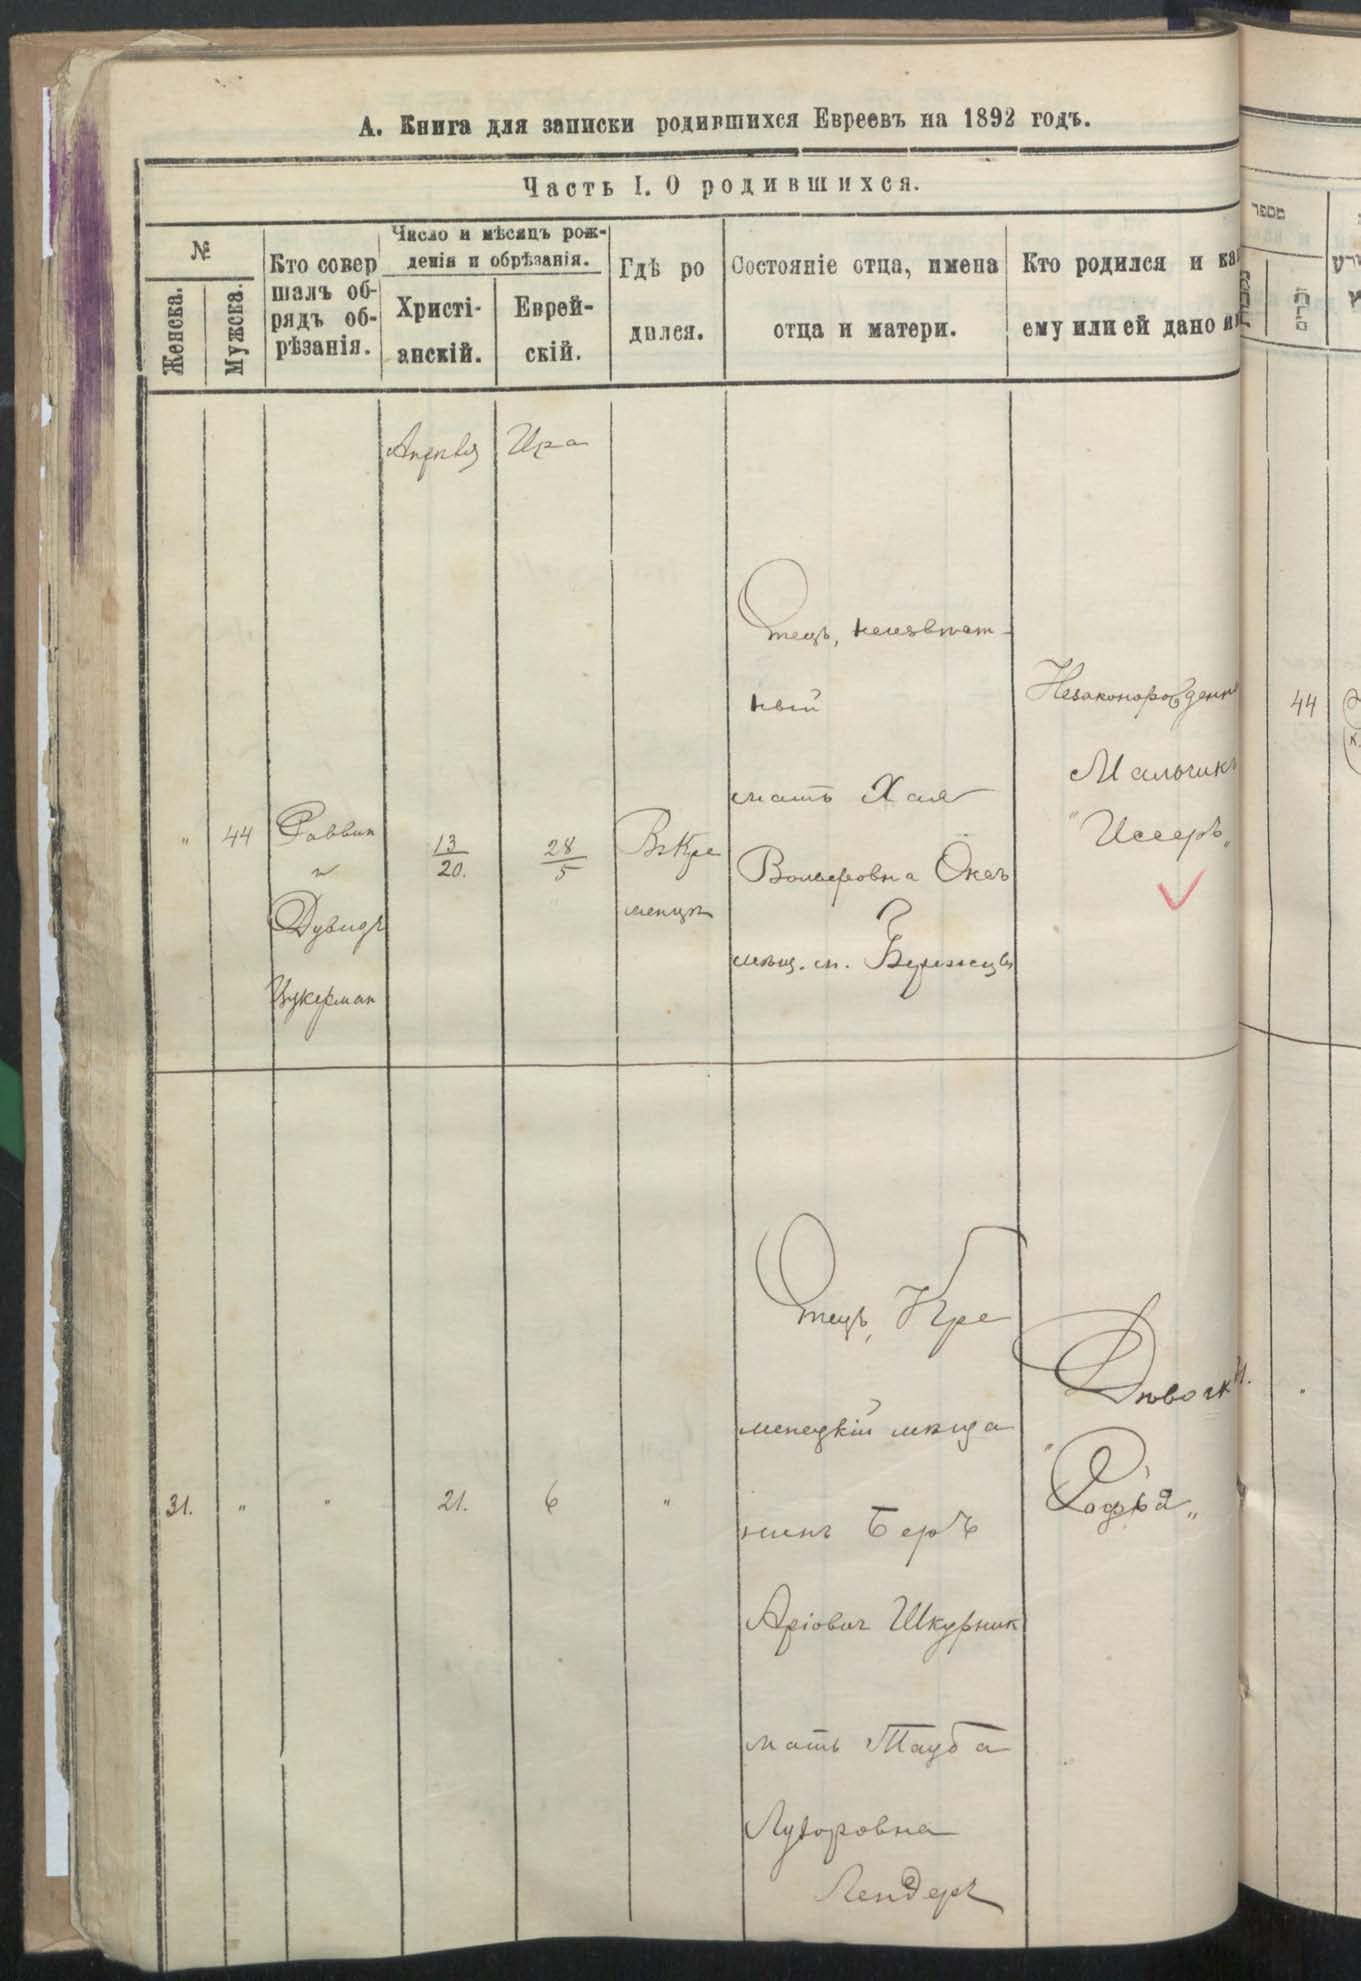 А. Книга для записки родившихся Евреевъ на 1892 годъ.
Часть I. О родившихся.
№
Женска.
Мужска.
Кто совер
шалъ об-
рядъ об-
рѣзанія.
Число и мѣсяцъ рож-
денія и обрѣзанія.
Христі-
анскій.
Еврей-
скій.
Гдѣ ро
дился.
Состояніе отца, имена
отца и матери.
Кто родился и ка
ему или ей дано и
Апрѣля
Ира
"
44
Раввин
Дувидъ
Цукерман
13
20.
28
5
Въ Кре
менцѣ
Отецъ, неизвѣст-
ный
мать Хая
Вольфовна Окс
мѣщ. м. Бережцы
Незаконорожденн
Мальчикъ
"Иссеръ„
31.
"
"
21.
6
"
Отецъ, Кре
менецкій мѣща
нинъ Беръ
Аріовичъ Шкурник
мать Тауба
Лузоровна
Лендеръ
Дѣвочка
"Рафья„
מספר
נקבות
זכרים
44
"